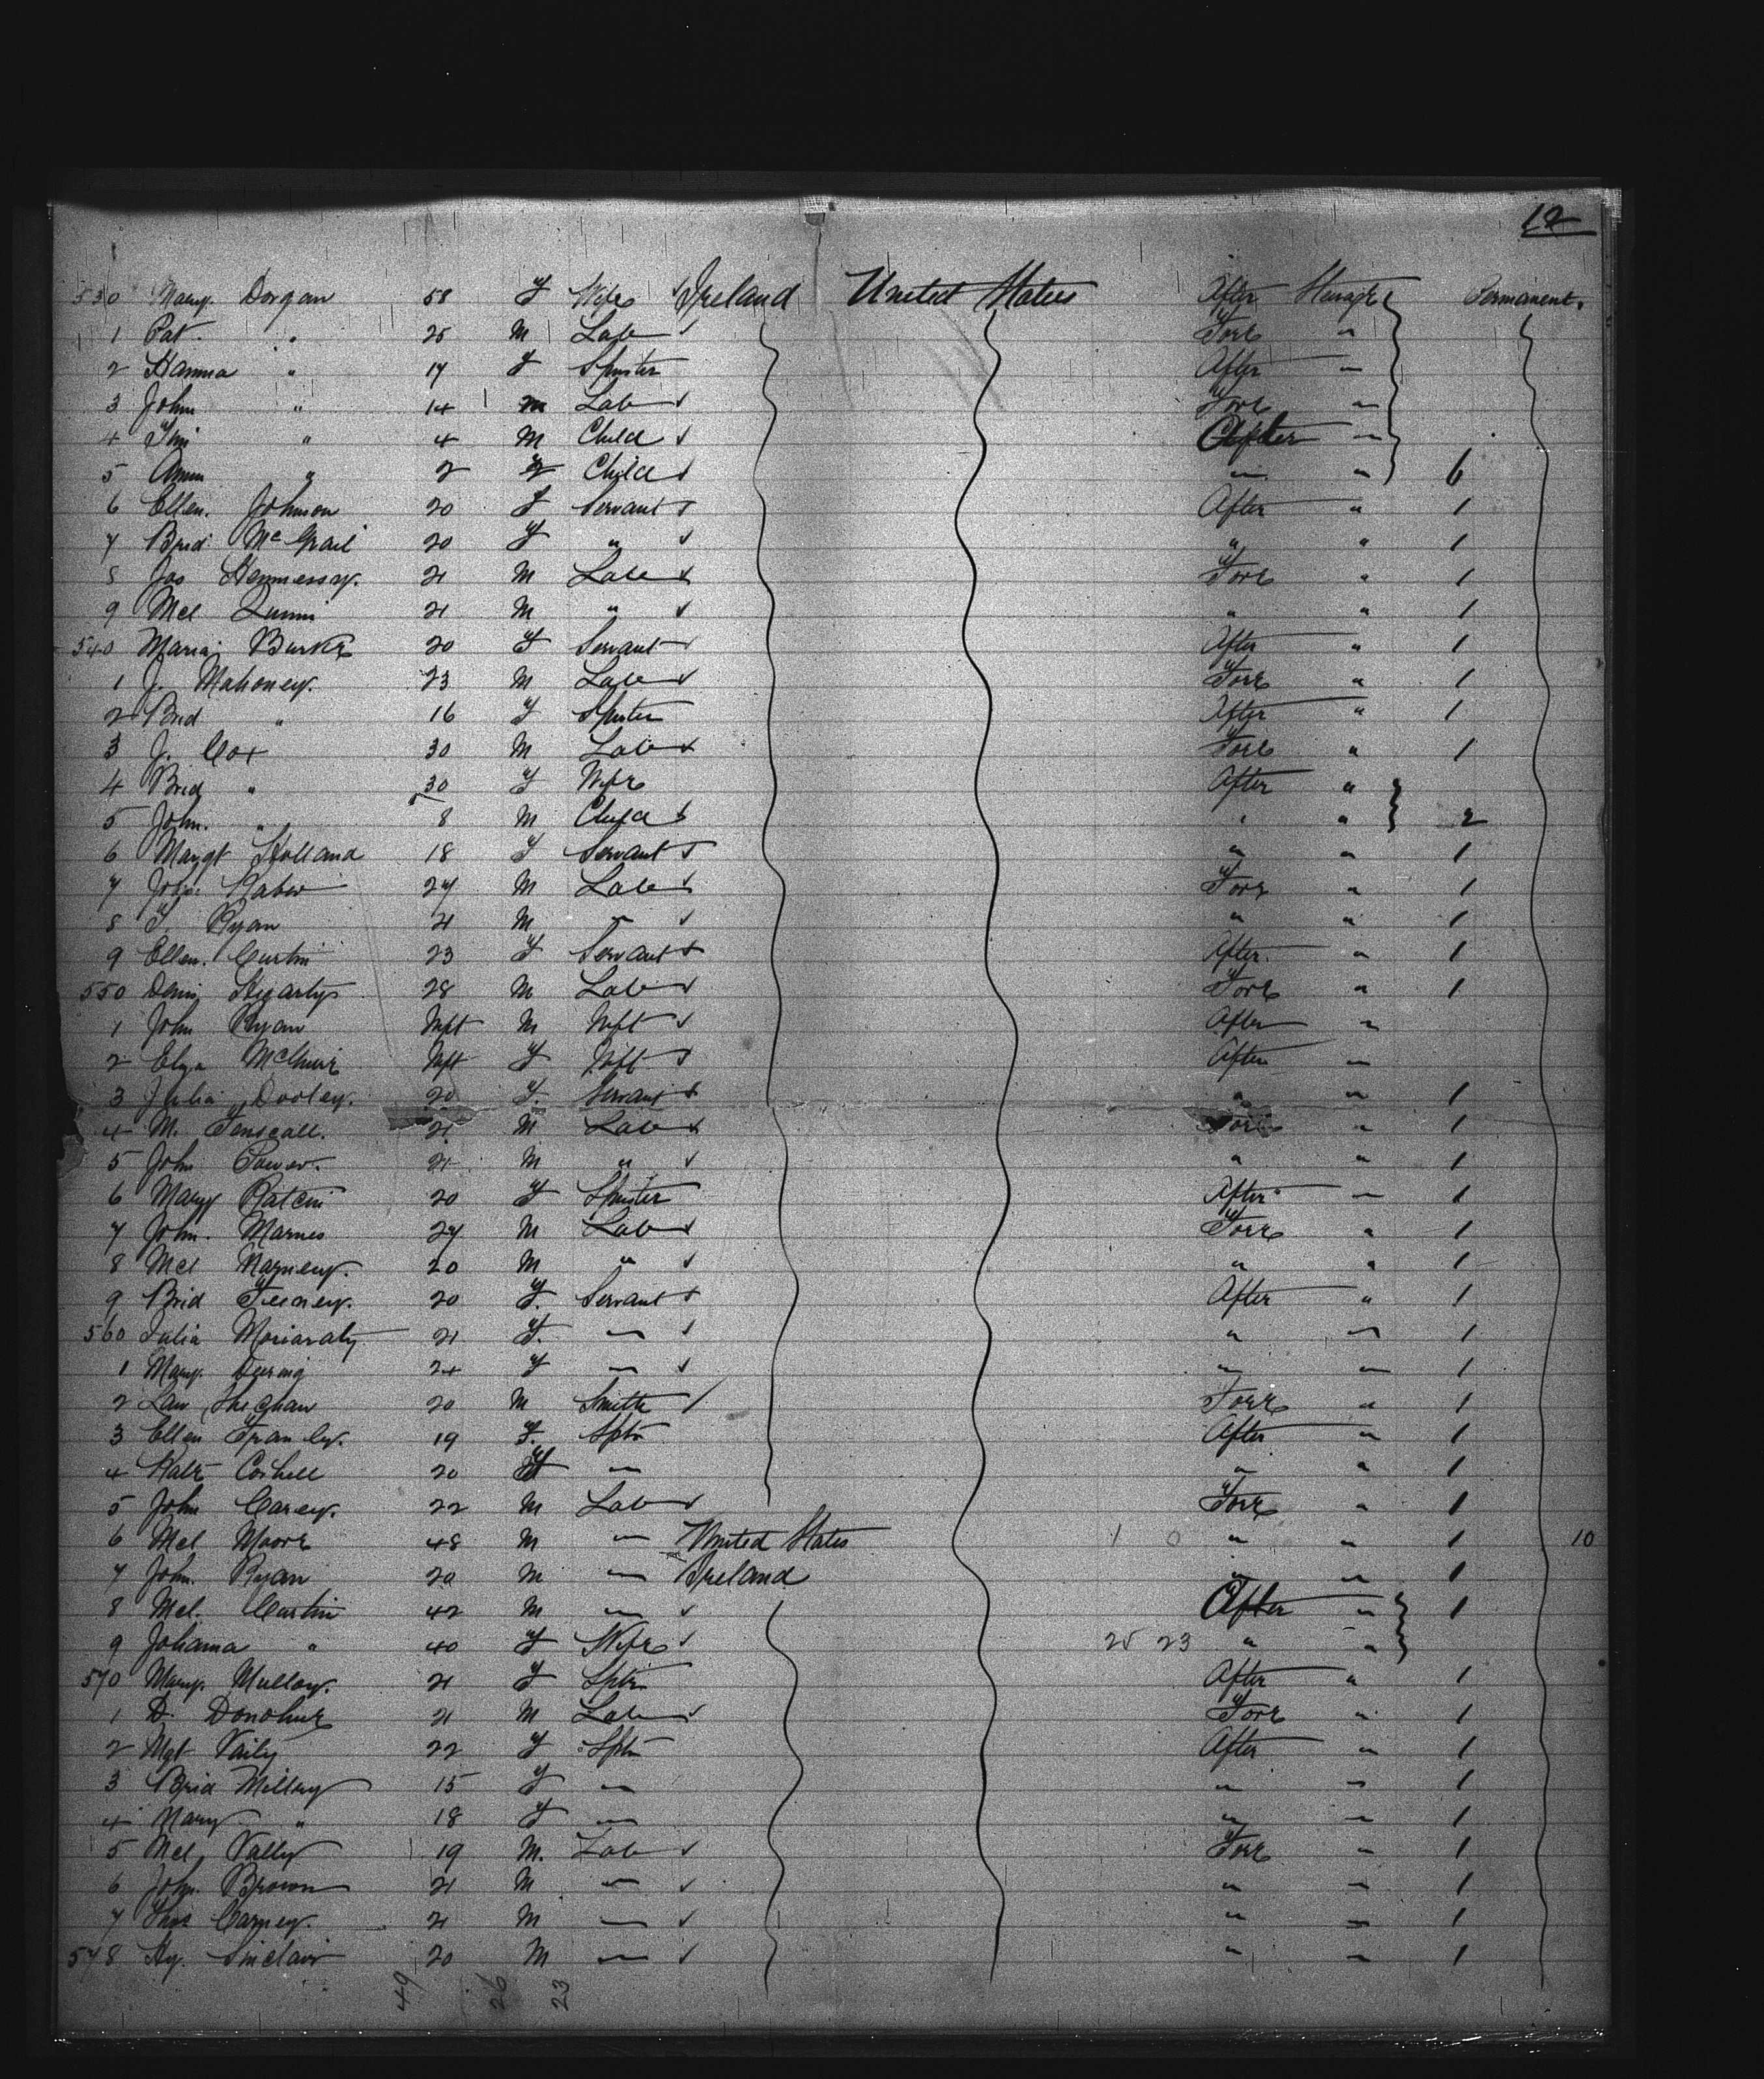 12
530 Mary Dorgan 58 F Wife Ireland United States After Steerage Permanent.
1 Pat. " 25 M Lab Fore "
2 Hanna " 17 F Spinster After "
3 John " 14 M Lab Fore "
4 Tim " 4 M Child After "
5 " 2 F Child " " 6
6 Ellen. Johnson 20 F Servant After " 1
7 Brid McGrail 20 F " " " 1
8 Jas Hennessy. 21 M Lab Fore " 1
9 Mcl Quinn 21 M " " " 1
540 Maria Burke 20 F Servant After " 1
1 J. Mahoney. 23 M Lab Fore " 1
2 Brid " 16 F Spinster After " 1
3 J. Cox 30 M Lab Fore " 1
4 Brid " 30 F Wife After "
5 John. " 8 M Child " " 2
6 Margt Holland 18 F Servant " " 1
7 27 M Lab Fore " 1
8 T. Ryan 21 M " " " 1
9 Ellen. Curtin 23 F Servant After " 1
550 Denis Hegarty 28 M Lab Fore " 1
1 John Ryan Inft M Inft After "
2 Eliza Inft F Inft After "
3 Julia Dooley. 20 F. Servant " " 1
4 M. 21 M Lab Fore " 1
5 John Power. 21 M " " " 1
6 Mary 20 F Spinster After " 1
7 John. Marnes 27 M Lab Fore " 1
8 Mcl 20 M " " " 1
9 Brid Feeney. 20 F. Servant After " 1
560 Julia Moriaraty 21 F. " " " 1
1 Mary 24 F " " " 1
2 Law Sheehan 20 M Smith Fore " 1
3 Ellen 19 F. Sptr After " 1
4 Kate 20 F " " " 1
5 John Carey. 22 M Lab Fore " 1
6 Mcl Moore 48 M " United States 1 0 " " 1 10
7 John. Ryan 20 M " Ireland " " 1
8 Mcl. Curtin 42 M " After " 1
9 Johanna " 40 F Wife 25 23 " "
570 Mary Mulloy. 21 F Sptr After " 1
1 D. Donohue 21 M Lab Fore " 1
2 Mgt 22 F Sptr After " 1
3 Brid 15 F " " " 1
4 Mary " 18 F " " " 1
5 Mcl 19 M. Lab Fore " 1
6 John. Brown 21 M " " " 1
7 Thos Carney. 21 M " " " 1
578 Hy. Sinclair 20 M " " " 1
49 26 23